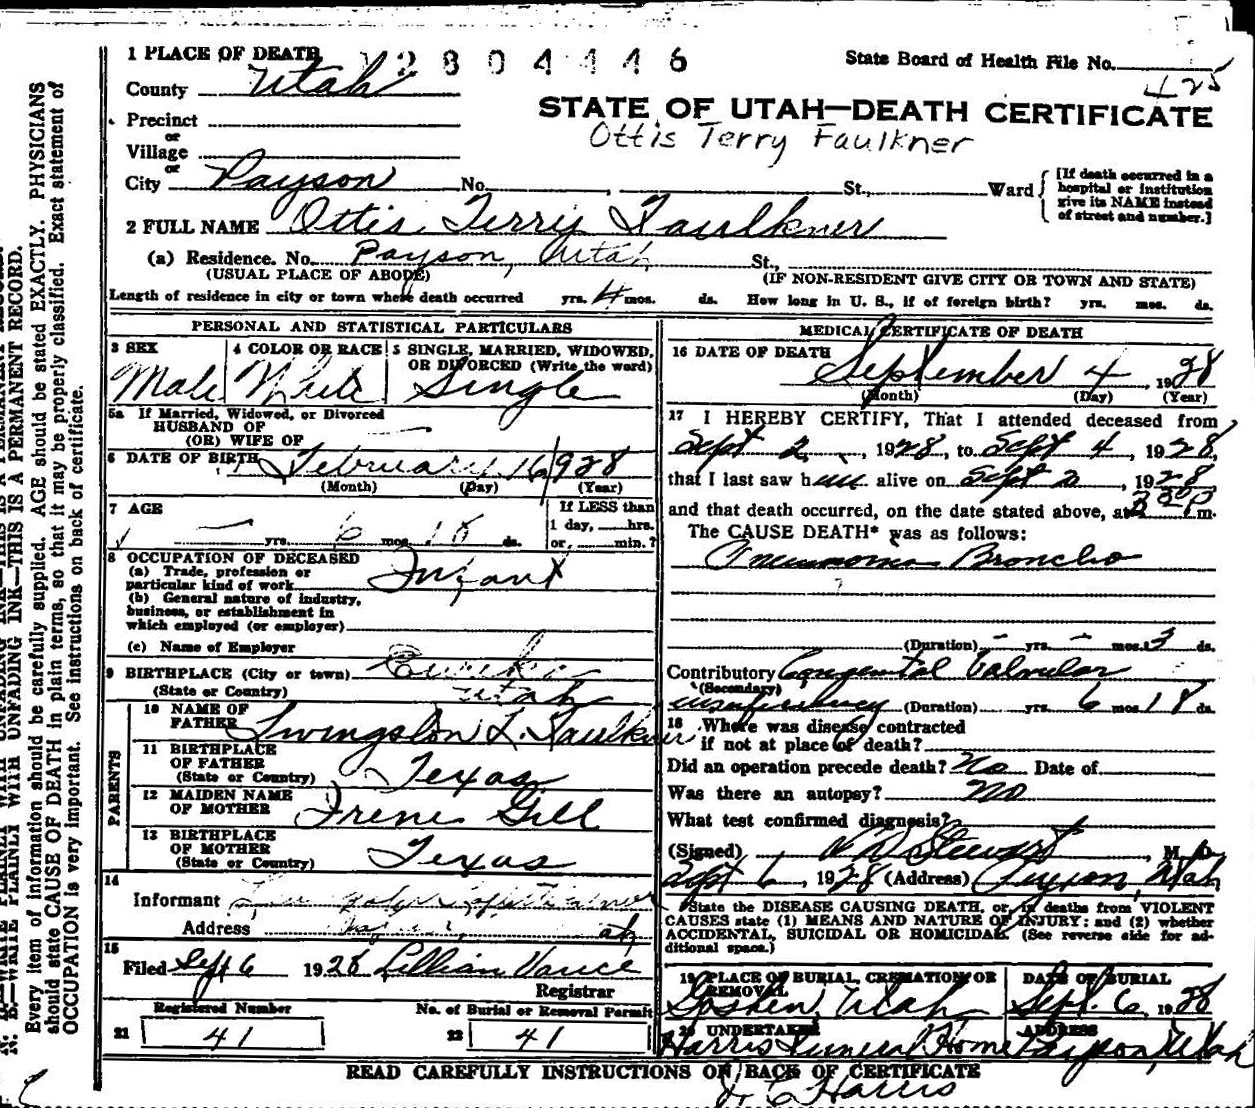 1 PLACE OF DEATH
2804446
State Board of Health File No.
425
County Utah
STATE OF UTAH—DEATH CERTIFICATE
Precinct
Ottis Terry Faulkner
or
Village
or
City Payson No. , St., Ward
[If death occurred in a hospital or institution give its NAME instead of street and number.]
2 FULL NAME Ottis Terry Faulkner
(a) Residence. No. Payson, Utah St.,
(USUAL PLACE OF ABODE) (IF NON-RESIDENT GIVE CITY OR TOWN AND STATE)
Length of residence in city or town where death occurred yrs. 4 mos. ds. How long in U. S., if of foreign birth? yrs. mos. ds.
PERSONAL AND STATISTICAL PARTICULARS
3 SEX
Male
4 COLOR OR RACE
White
5 SINGLE, MARRIED, WIDOWED, OR DIVORCED (Write the word)
Single
5a If Married, Widowed, or Divorced
HUSBAND OF
(OR) WIFE OF
6 DATE OF BIRTH February 16 1928
(Month) (Day) (Year)
7 AGE
yrs. 6 mos. 18 ds.
If LESS than
1 day, hrs.
or, min.?
8 OCCUPATION OF DECEASED
(a) Trade, profession or
particular kind of work Infant
(b) General nature of industry,
business, or establishment in
which employed (or employer)
(c) Name of Employer
9 BIRTHPLACE (City or town) Eureka
(State or Country) Utah
PARENTS
10 NAME OF
FATHER Livingston L. Faulkner
11 BIRTHPLACE
OF FATHER
(State or Country) Texas
12 MAIDEN NAME
OF MOTHER Irene Gill
13 BIRTHPLACE
OF MOTHER
(State or Country) Texas
14
Informant
Address
15
Filed Sept 6 1928 Lillian Vance
Registrar
Registered Number
21 41
No. of Burial or Removal Permit
22 41
MEDICAL CERTIFICATE OF DEATH
16 DATE OF DEATH
September 4, 1928
(Month) (Day) (Year)
17 I HEREBY CERTIFY, That I attended deceased from
Sept 2, 1928, to Sept 4, 1928,
that I last saw him alive on Sept 2, 1928
and that death occurred, on the date stated above, at m.
The CAUSE DEATH* was as follows:
Pneumonia Broncho
(Duration) - yrs. - mos. 3 ds.
Contributory Congenital Valvular
(Secondary)
insufficiency (Duration) yrs. 6 mos. 18 ds.
18 Where was disease contracted
if not at place of death?
Did an operation precede death? No Date of
Was there an autopsy? No
What test confirmed diagnosis?
(Signed) Stewart, M. D.
Sept 6, 1928 (Address) Payson, Utah
*State the DISEASE CAUSING DEATH, or, in deaths from VIOLENT
CAUSES state (1) MEANS AND NATURE OF INJURY: and (2) whether
ACCIDENTAL, SUICIDAL OR HOMICIDAL. (See reverse side for ad-
ditional space.)
19 PLACE OF BURIAL, CREMATION OR
REMOVAL
Goshen, Utah
DATE OF BURIAL
Sept. 6, 1928
20 UNDERTAKER
Harris Funeral Home
ADDRESS
Payson, Utah
READ CAREFULLY INSTRUCTIONS ON BACK OF CERTIFICATE
Harris
N. B.—WRITE PLAINLY WITH UNFADING INK—THIS IS A PERMANENT RECORD.
Every item of information should be carefully supplied. AGE should be stated EXACTLY. PHYSICIANS
should state CAUSE OF DEATH in plain terms, so that it may be properly classified. Exact statement of
OCCUPATION is very important. See instructions on back of certificate.